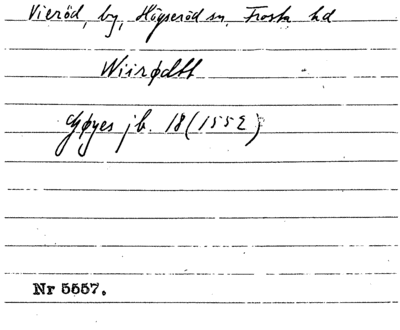 Vieröd, by, Högseröd sn. Frosta hd
Wiirødtt
Gøyes jb. 18 (1552)
Nr 5557.